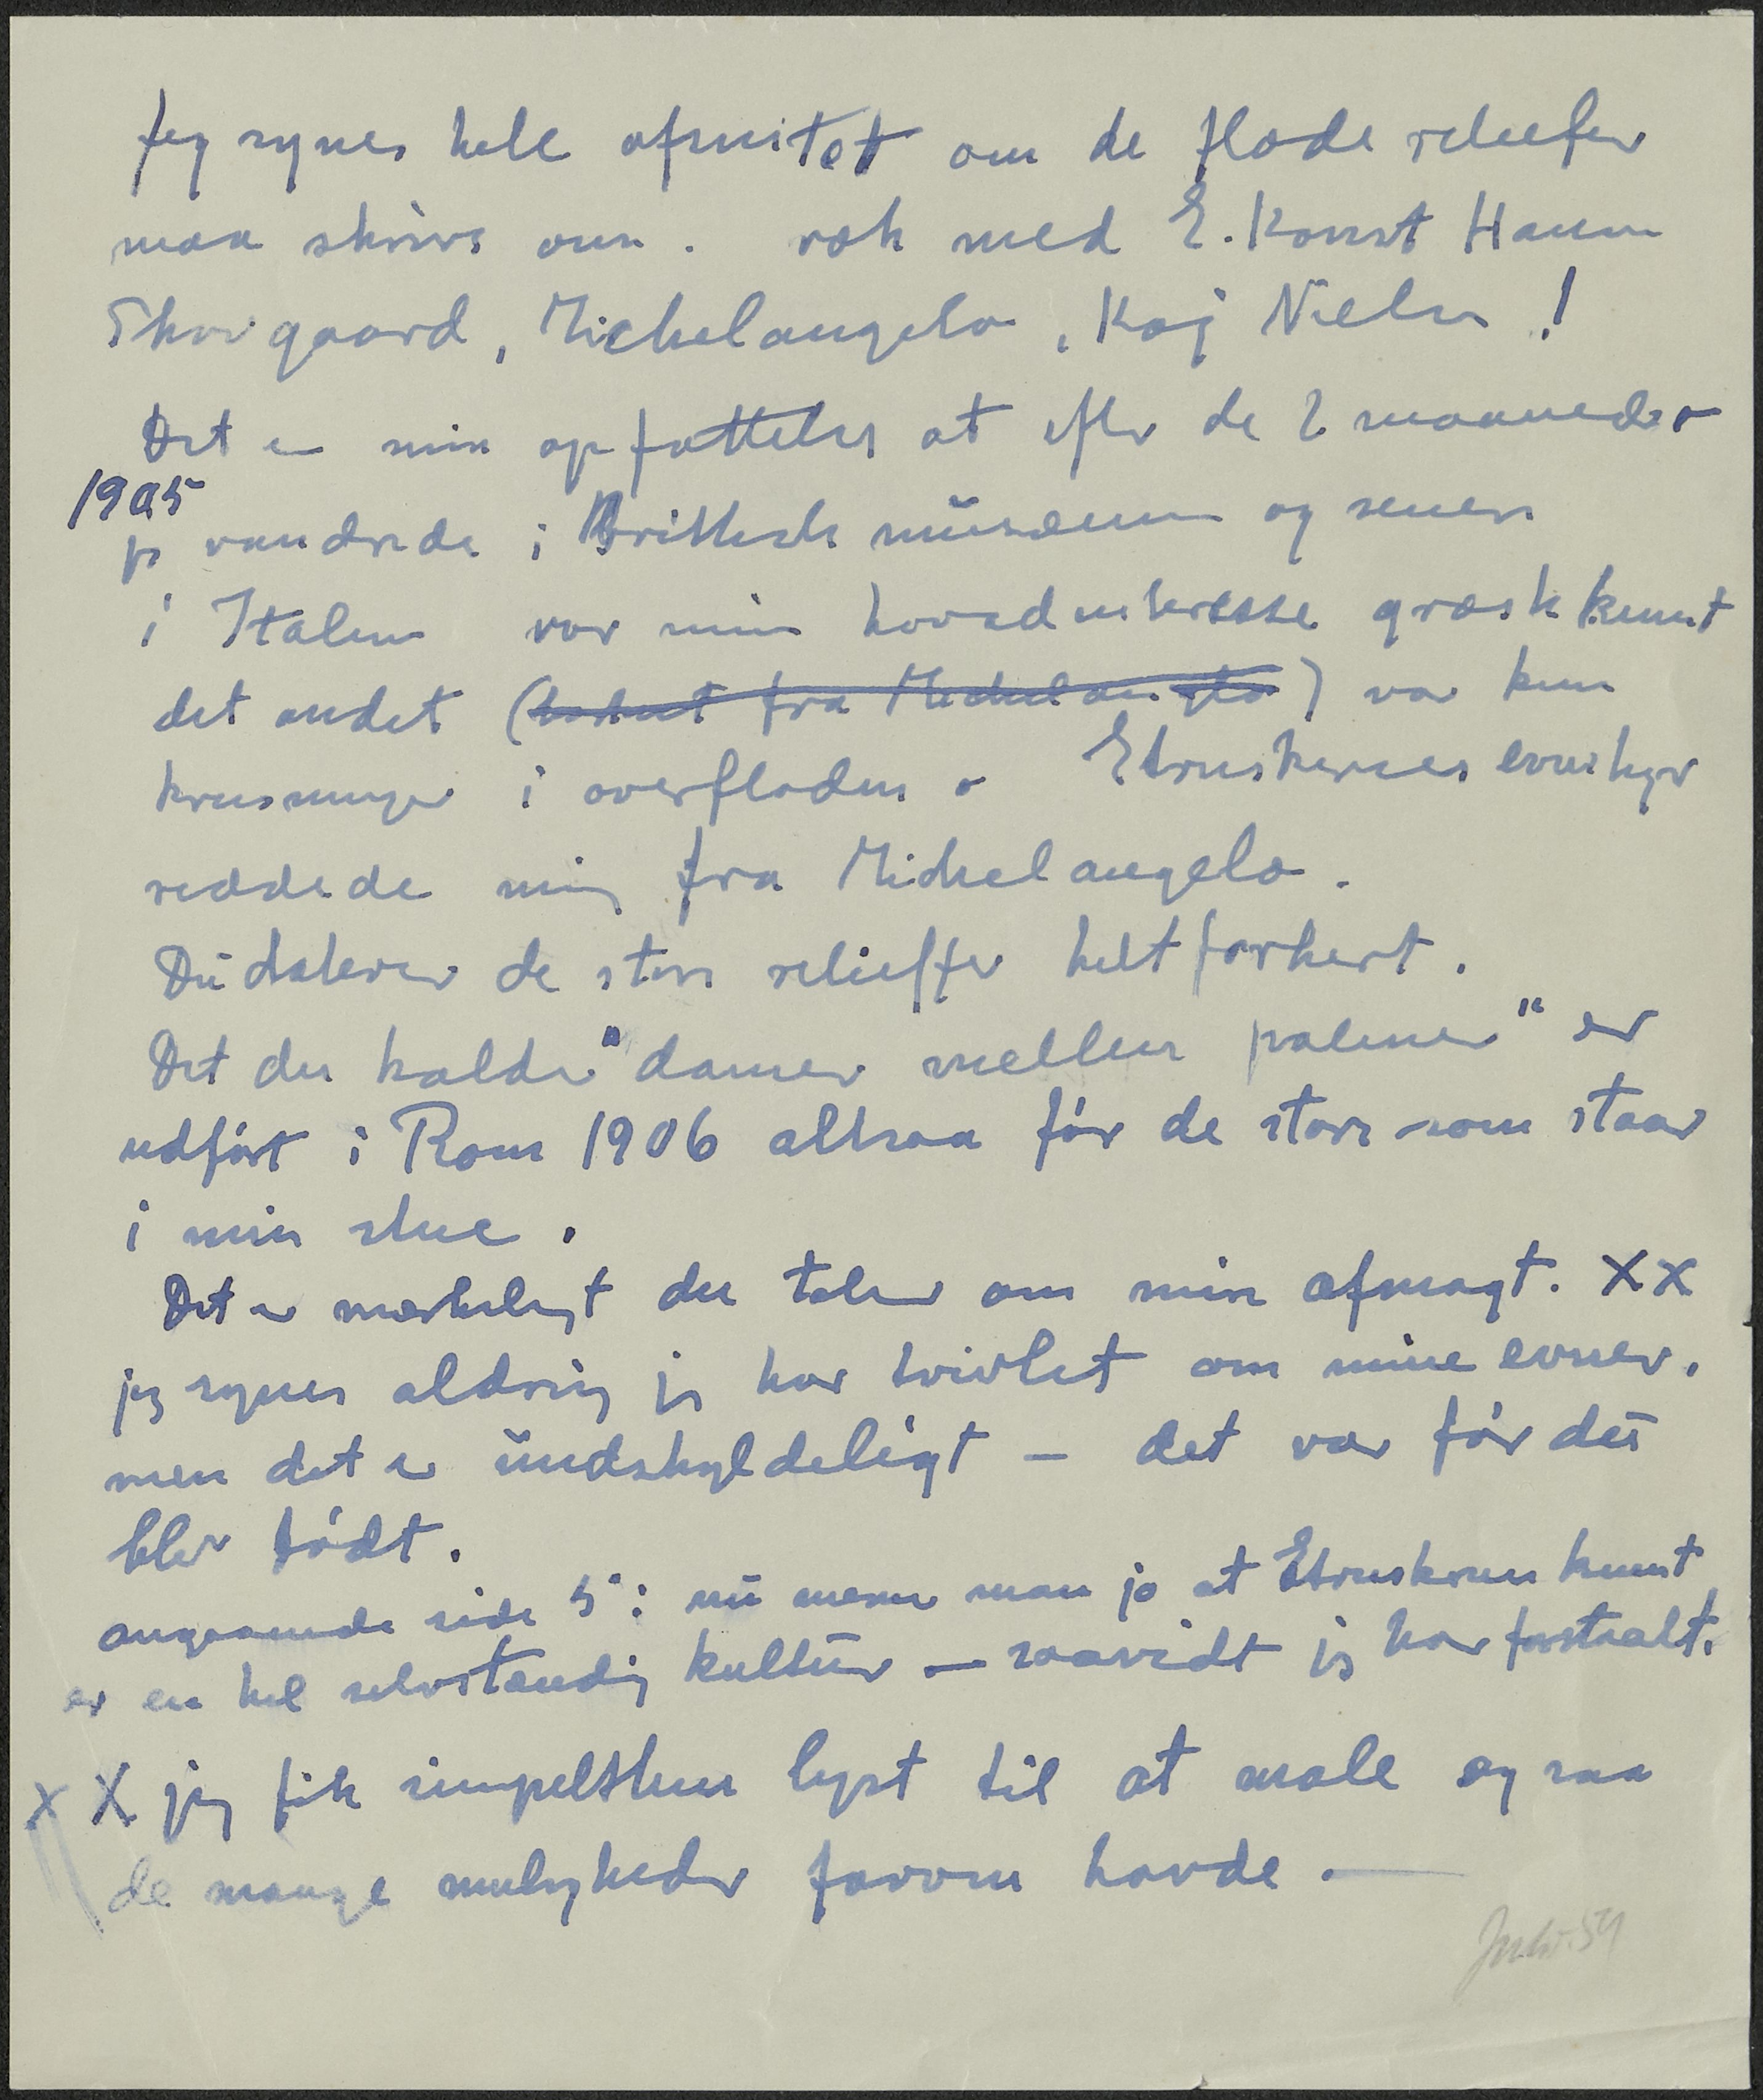 Jeg synes hele afsnitet om de flade relieefer
maa skrives om. væk med E. Konst Hansen
Skovgaard, Michelangelo, Kaj Nielsen!
Det er min opfattelse at efter de 2 maaneder
1905
jeg vandrede i Brittish müsæum og senere
i Italien var min hovedinteresse græsk kunst
det andet (bortset fra Michelangelo) var kun
krusninger i overfladen. Etruskernes
reddede mig fra Michelangelo.
Dü daterer de store relieffer helt forkert.
Det du kalder "damer mellem palmer" er
udført i Rom 1906 altsaa før de store som staar
i min stue.
Det er mærkeligt du taler om min afmagt. XX
jeg synes aldrig jeg har tvivlet om mine evner.
men det er ündskyldeligt – det var før dü
blev født.
angaaende side 5: nü mener man jo at Etruskernes kunst
er en hel selvstændig kultür – saavidt jeg har forstaalt.
XX jeg fik simpelthen lyst til at male og saa
de mange muligheder farven havde. —